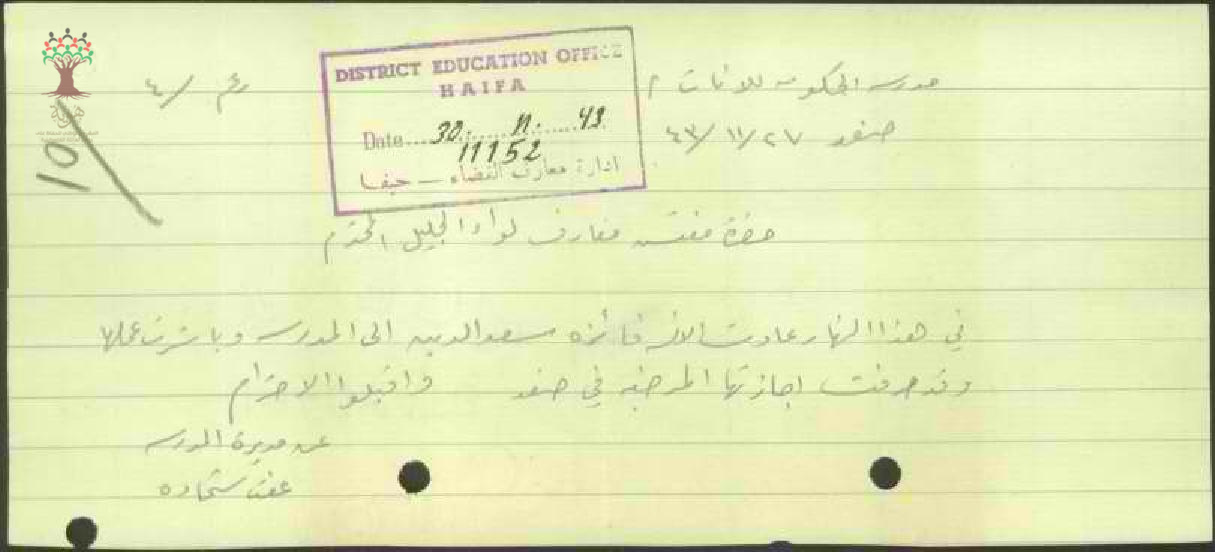 مدرسة الحكومة للاناث
رقم /٤
صفد ٢٧/١١/٤٣
10/
DISTRICT EDUCATION OFFICE
HAIFA
Date....30......11.......43.
11152
ادارة معارف القضاء – حيفا
حضرة مفتش معارف لواء الجليل المحترم
في هذا النهار عادت الانسه فائزه سعد الدين الى المدرسه وباشرت عملها
وقد صرفت اجازتها المرضيه في صفد واقبلوا الاحترام
عن مديرة المدرسه
عفت